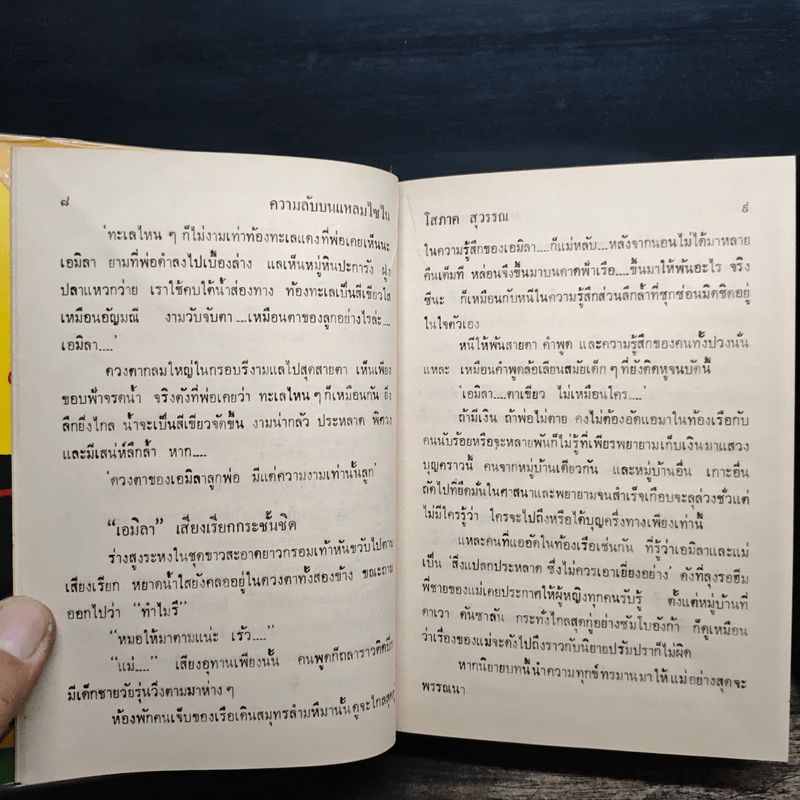 ๘
ความลับบนแหลมไซไน
‘ทะเลไหน ๆ ก็ไม่งามเท่าท้องทะเลแดงที่พ่อเคยเห็นนะ
เอมิลา ยามที่พ่อดำลงไปเบื้องล่าง แลเห็นหมู่หินปะการัง ฝูง
ปลาแหวกว่าย เราใช้คบไต้น้ำส่องทาง ท้องทะเลเป็นสีเขียวใส
เหมือนอัญมณี งามวับจับตา...เหมือนตาของลูกอย่างไรล่ะ....
เอมิลา....’
ดวงตากลมใหญ่ในกรอบรีงามแลไปสุดสายตา เห็นเพียง
ขอบฟ้าจรดน้ำ จริงดังที่พ่อเคยว่า ทะเลไหน ๆ ก็เหมือนกัน ยิ่ง
ลึกยิ่งไกล น้ำจะเป็นสีเขียวจัดขึ้น งามน่ากลัว ประหลาด พิศวง
และมีเสน่ห์ลึกล้ำ หาก....
‘ดวงตาของเอมิลาลูกพ่อ มีแต่ความงามเท่านั้นลูก’
“เอมิลา” เสียงเรียกกระชั้นชิด
ร่างสูงระหงในชุดขาวสะอาดยาวกรอมเท้าหันขวับไปตาม
เสียงเรียก หยาดน้ำใสยังคลออยู่ในดวงตาทั้งสองข้าง ขณะถาม
ออกไปว่า “ทำไมรึ”
“หมอให้มาตามแน่ะ เร็ว....”
“แม่....” เสียงอุทานเพียงนั้น คนพูดก็ถลาราวติดปีก
มีเด็กชายวัยรุ่นวิ่งตามมาห่าง ๆ
ห้องพักคนเจ็บของเรือเดินสมุทรลำมหึมานั้นดูจะไกลสุดกู่
โสภาค สุวรรณ
๙
ในความรู้สึกของเอมิลา....ก็แม่หลับ...หลังจากนอนไม่ได้มาหลาย
คืนเต็มที หล่อนจึงขึ้นมาบนดาดฟ้าเรือ....ขึ้นมาให้พ้นอะไร จริง
ซีนะ ก็เหมือนกับหนีในความรู้สึกส่วนลึกล้ำที่ซุกซ่อนมิดชิดอยู่
ในใจตัวเอง
หนีให้พ้นสายตา คำพูด และความรู้สึกของคนทั้งปวงนั่น
แหละ เหมือนคำพูดล้อเลียนสมัยเด็ก ๆ ที่ยังติดหูจนบัดนี้
‘เอมิลา....ตาเขียว ไม่เหมือนใคร....’
ถ้ามีเงิน ถ้าพ่อไม่ตาย คงไม่ต้องอัดแอมาในท้องเรือกับ
คนนับร้อยหรือจะหลายพันก็ไม่รู้ที่เพียรพยายามเก็บเงินมาแสวง
บุญคราวนี้ คนจากหมู่บ้านเดียวกัน และหมู่บ้านอื่น เกาะอื่น
ถัดไปที่ยึดมั่นในศาสนาและพยายามจนสำเร็จเกือบจะลุล่วงชั่วแต่
ไม่มีใครรู้ว่า ใครจะไปถึงหรือได้บุญครึ่งทางเพียงเท่านี้
แหละคนที่แออัดในท้องเรือเช่นกัน ที่รู้ว่าเอมิลาและแม่
เป็น ‘สิ่งแปลกประหลาด ซึ่งไม่ควรเอาเยี่ยงอย่าง’ ดังที่ลุงรอฮีม
พี่ชายของแม่เคยประกาศให้ผู้หญิงทุกคนรับรู้ ตั้งแต่หมู่บ้านที่
คาเวา คันซาลัน กระทั่งไกลสุดกู่อย่างซัมโบอังก้า ก็ดูเหมือน
ว่าเรื่องของแม่จะดังไปถึงราวกับนิยายปรัมปราก็ไม่ผิด
หากนิยายบทนี้นำความทุกข์ทรมานมาให้แม่อย่างสุดจะ
พรรณนา